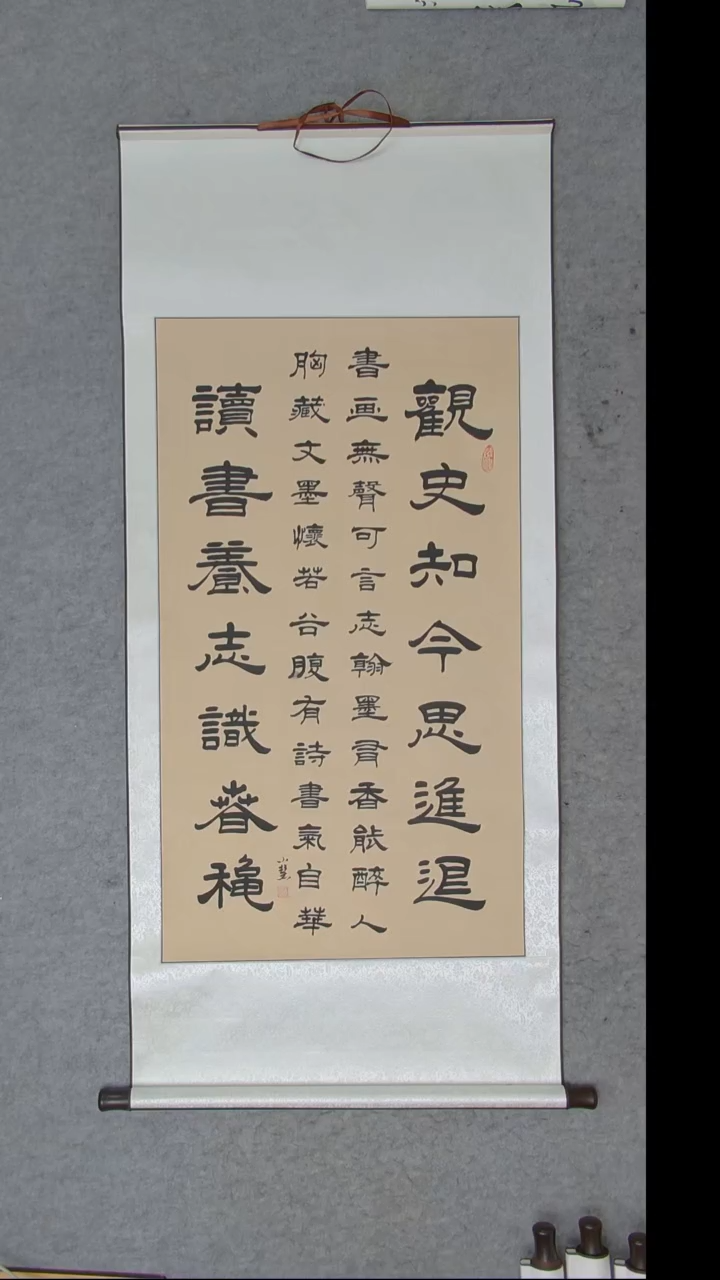 觀史知今思進退
書画無聲可言志翰墨有香能醉人
胸藏文墨懷若谷腹有詩書氣自華
讀書養志識春秋